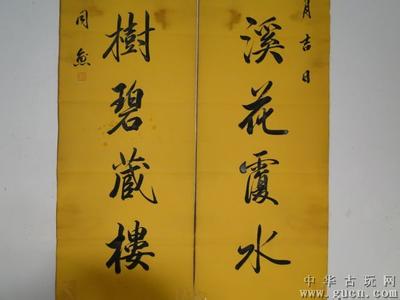 月吉日
溪花覆水
樹碧藏樓
同
中华古玩网
www.gucn.com